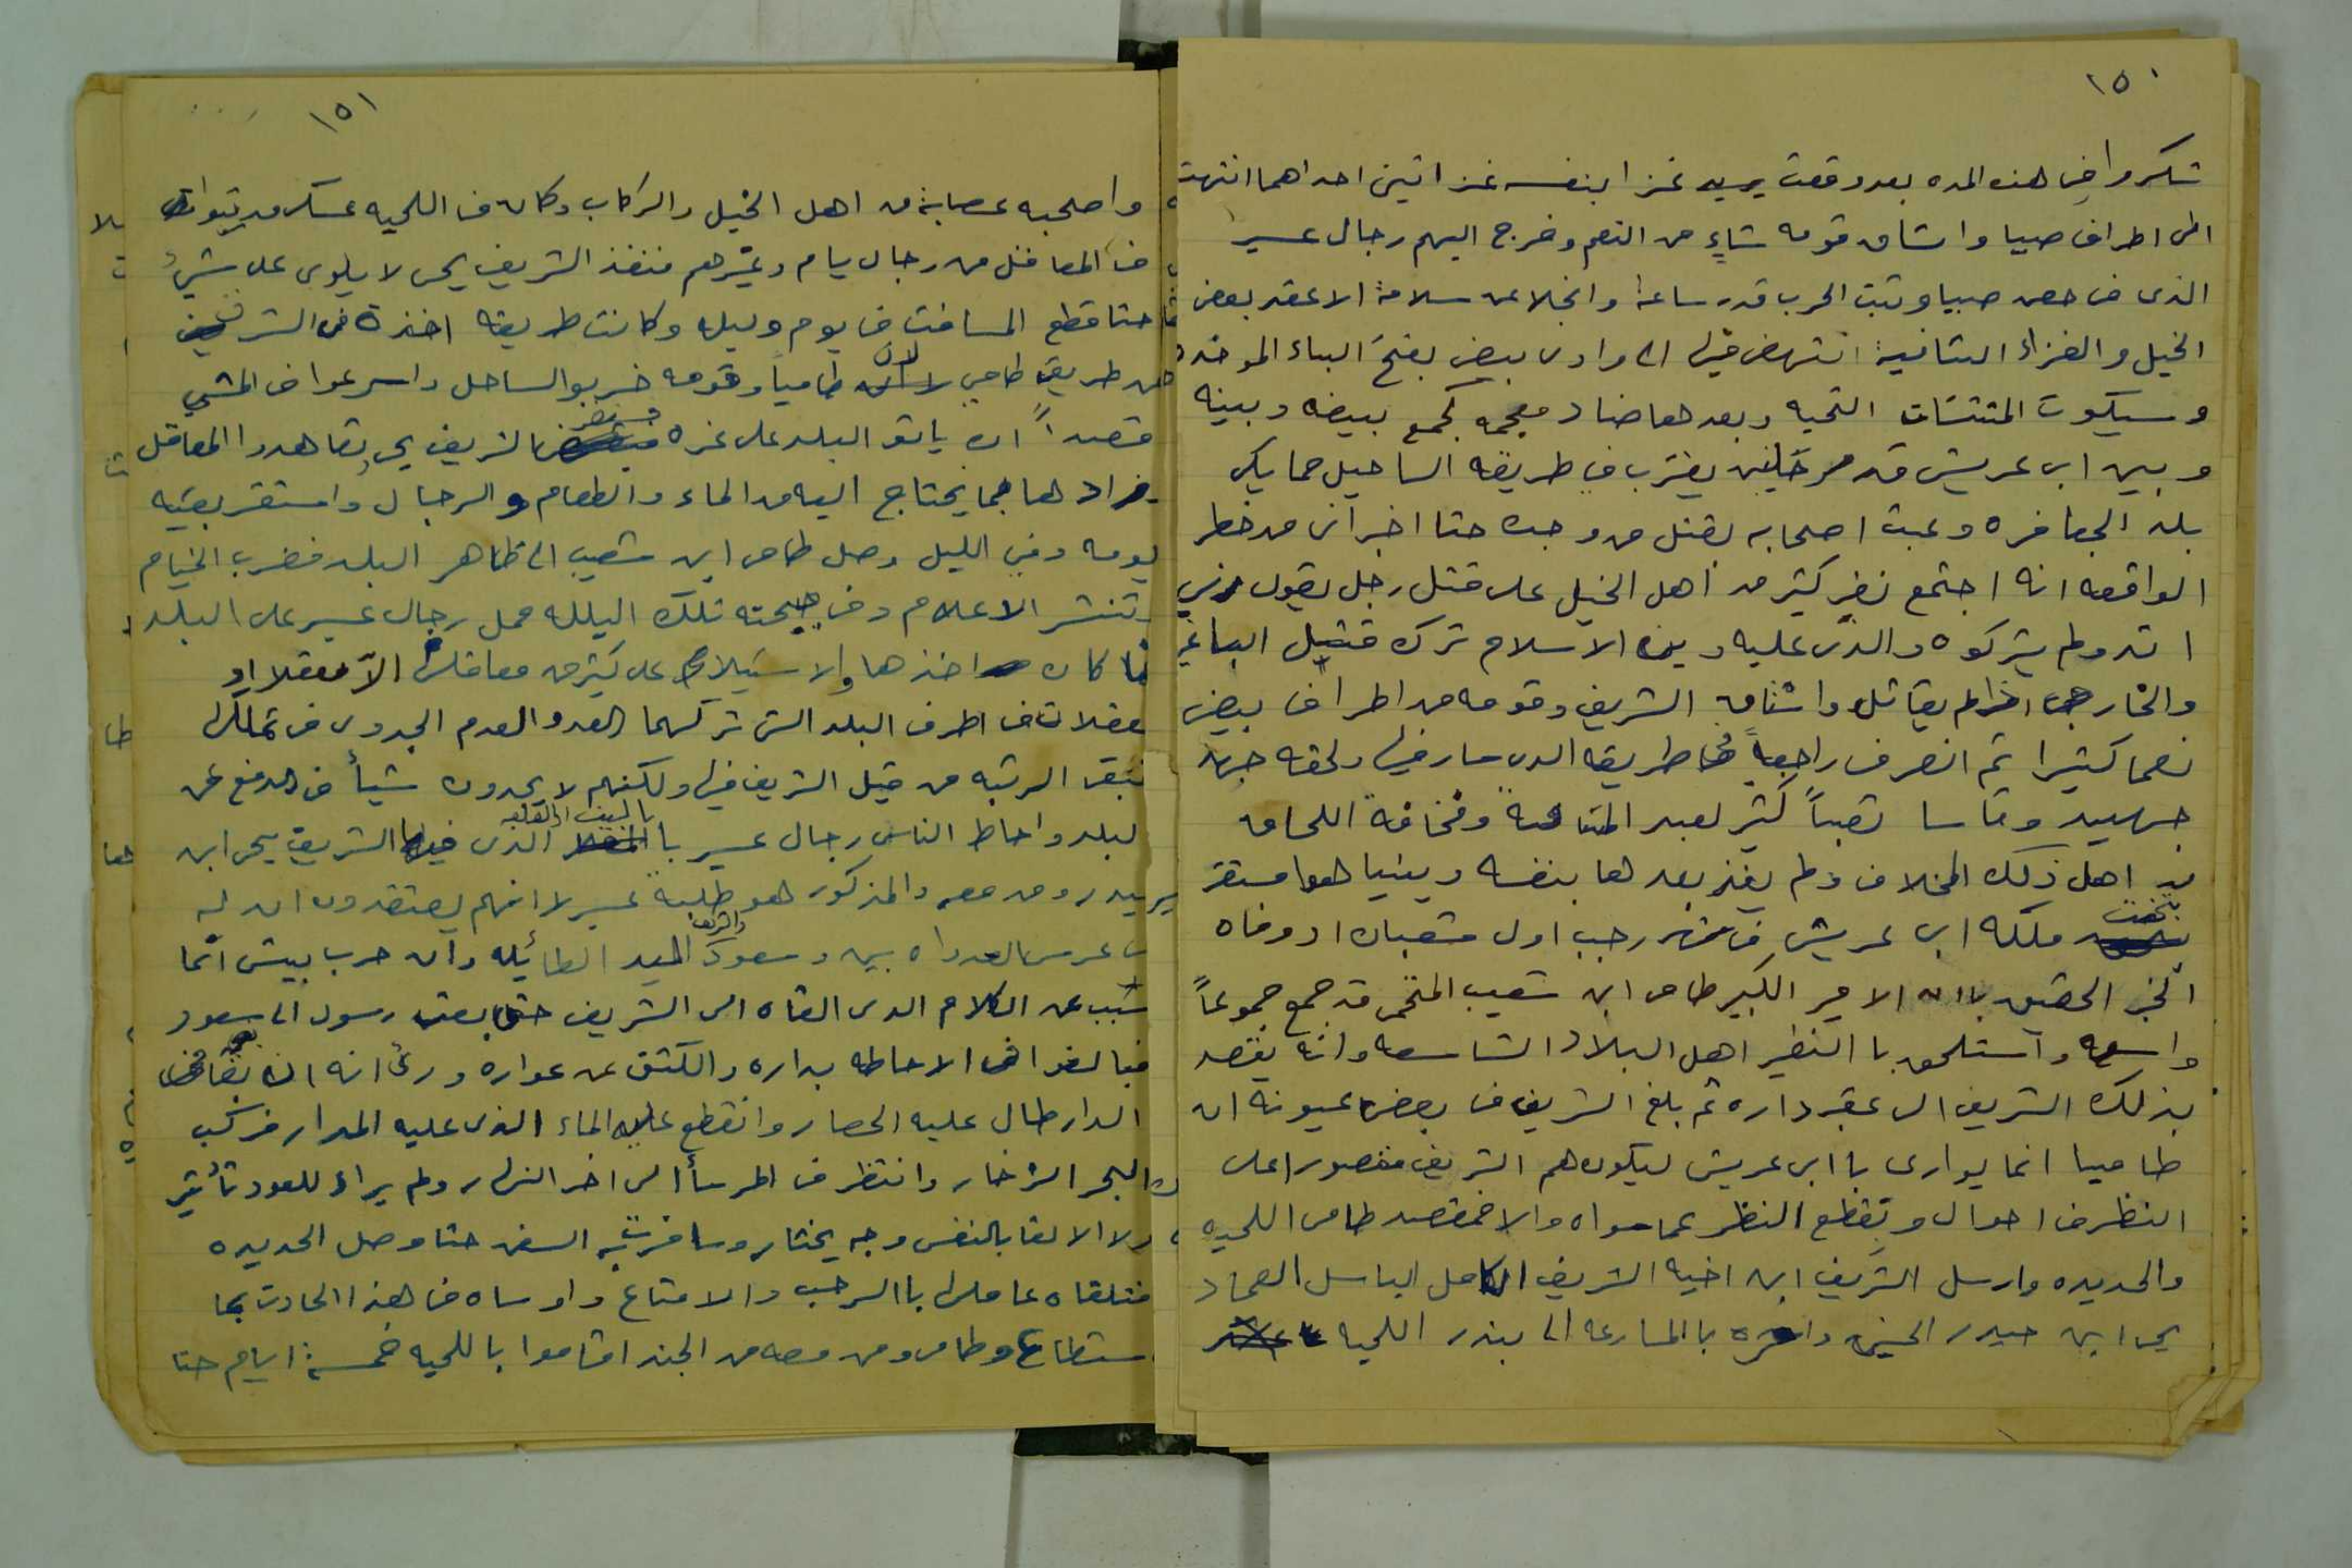 ١٥٠
شكروا في هذه المده بعد وقعت يريد غزا بنفسه غزاتين احداهما انتهت
الى اطراف صبيا واستاق قومه شاءٍ من النعم وخرج اليهم رجال عسير
الذى في حصن صبيا وثبت الحرب قدر ساعة وانجلا عن سلامة الا عقر بعض
الخيل والغزاة الثانية انتهض فيها الى وادى بيض بفتح الباء الموحده
وسيكوت المثنات التحيه وبعدها ضاد معجمه كجمع بيضه وبينه
وبين ابي عريش قدر مرحلتين يقترب في طريقه الساحيل مما يلى
بلد الجعافره وعبت اصحابه بقتل من وجده حتا اخبرنى من حظر
الواقعه انه اجتمع نفر كثير من اهل الخيل على قتل رجل يقول ربي
الله ولم يتركوه والذى عليه دين الاسلام ترك قتيل الباغي
والخارجى اذا لم يقاتل واستاق الشريف وقومه من اطراف بيض
نعما كثيرا ثم انصرف راجعاً في طريقه الذى سار فيها ولحقه جهد
جهيد وقاسا تعباً كثير لبعد المسافه ومخافة اللحاق
من اهل ذلك المخلاف ولم يغز بعدها بنفسه وبينيا هوا مستقر
بتخت ملكه ابى عريش في شهر رجب اول شعبان اذ وفاه
الخبر الحقيق باان الامير الكبير طامى ابن شعيب المتحمى قد جمع جموعاً
واسعه واستلحق باالنفير اهل البلاد الشاسعه وانه يقصد
بذلك الشريف الى عقر داره ثم بلغ الشريف من بعض عيونه ان
طاميا انما يوارى باابى عريش ليكون هم الشريف مقصورا على
النظر في احوال ويقطع النظر عما سواه والا فمقصد طامى اللحيه
والحديده وارسل الشريف ابن اخيه الشريف الكامل الباسل العماد
يحى ابن حيدر الحسنى وامره باالمسارعه الى بندر اللحيه
١٥١
واصحبه عصابة من اهل الخيل والركاب وكان في اللحيه عسكر مرتبوان
في المعاقل من رجال يام وغيرهم فنفذ الشريف يحى لا يلوى على شئ
حتا قطع المسافت في يوم وليله وكانت طريقه اخذة في الشرق
عن طريق طامي لان طامياً وقومه خربو الساحل واسرعوا في المشي
قصداً ان ياتو البلد على غره فستقر الشريف يحى بتعاهدوا المعاقل
وزادها مما يحتاج اليه من الماء والطعام والرجال واستقر بقيه
يومه وفي الليل وصل طامى ابن شعيب الى ظاهر البلد فضرب الخيام
وتنشر الاعلام وفى صبيحته تلك اليلله حمل رجال عسير على البلد
فما كان اخذها والاستيلاء على كثير من معاقلها الا معقلا او
معقلان في اطرف البلد التى تركهما العدو العدم الجدوى في تملكها
فبقى الرتبه من قبل الشريف فيها ولكنهم لا يجدون شيأ في الدفع عن
البلد واحاط الناس رجال عسير باالبيت او القلعه الذى فيها الشريف يحى ابن
حيدر ومن معه والمذكور هو طلبة عسير لانهم يعتقدون ان له
في غرس العدواه بين وسعود والشريف اليد الطائله وان حرب بيش انما
سبب عن الكلام الذى القاه الى الشريف حتى بعث رسول الى سعود
فبالغوا في الاحاطه بداره والكشف عن عواره ورئ انه ان بقى في
الدار طال عليه الحصار وانقطع عليه الماء الذى عليه المدار فركب
البحر الزخار وانتظر في المرسأ الى اخر النهار ولم يراء للعود تأثير
ولا الالقا بالنفس وجه يختار وسافرت به السفن حتا وصل الحديده
فتلقاه عاملها باالرحب والامتاع واوساه في هذا الحادث بما
ستطاع وطامى ومن معه من الجند اقاموا باللحيه خمسة ايام حتا